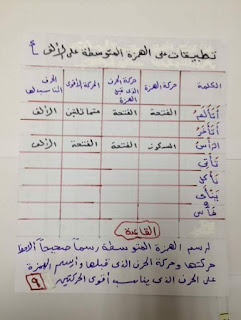 تطبيقات على الهمزة المتوسطة على الألف أ
الكلمة حركة الهمزة حركة الحرف الذي قبل الهمزة الحركة الأقوى الحرف المناسب لها
أتألم الفتحة الفتحة متماثلتين الألف
أتأخر
الرأس السكون الفتحة الفتحة الألف
تأتي
تأكل
ينأى
فأس
القاعدة
لرسم الهمزة المتوسطة رسماً صحيحاً ألاحظ
حركتها وحركة الحرف الذي قبلها وأرسم الهمزة
على الحرف الذي يناسب أقوى الحركتين
٩